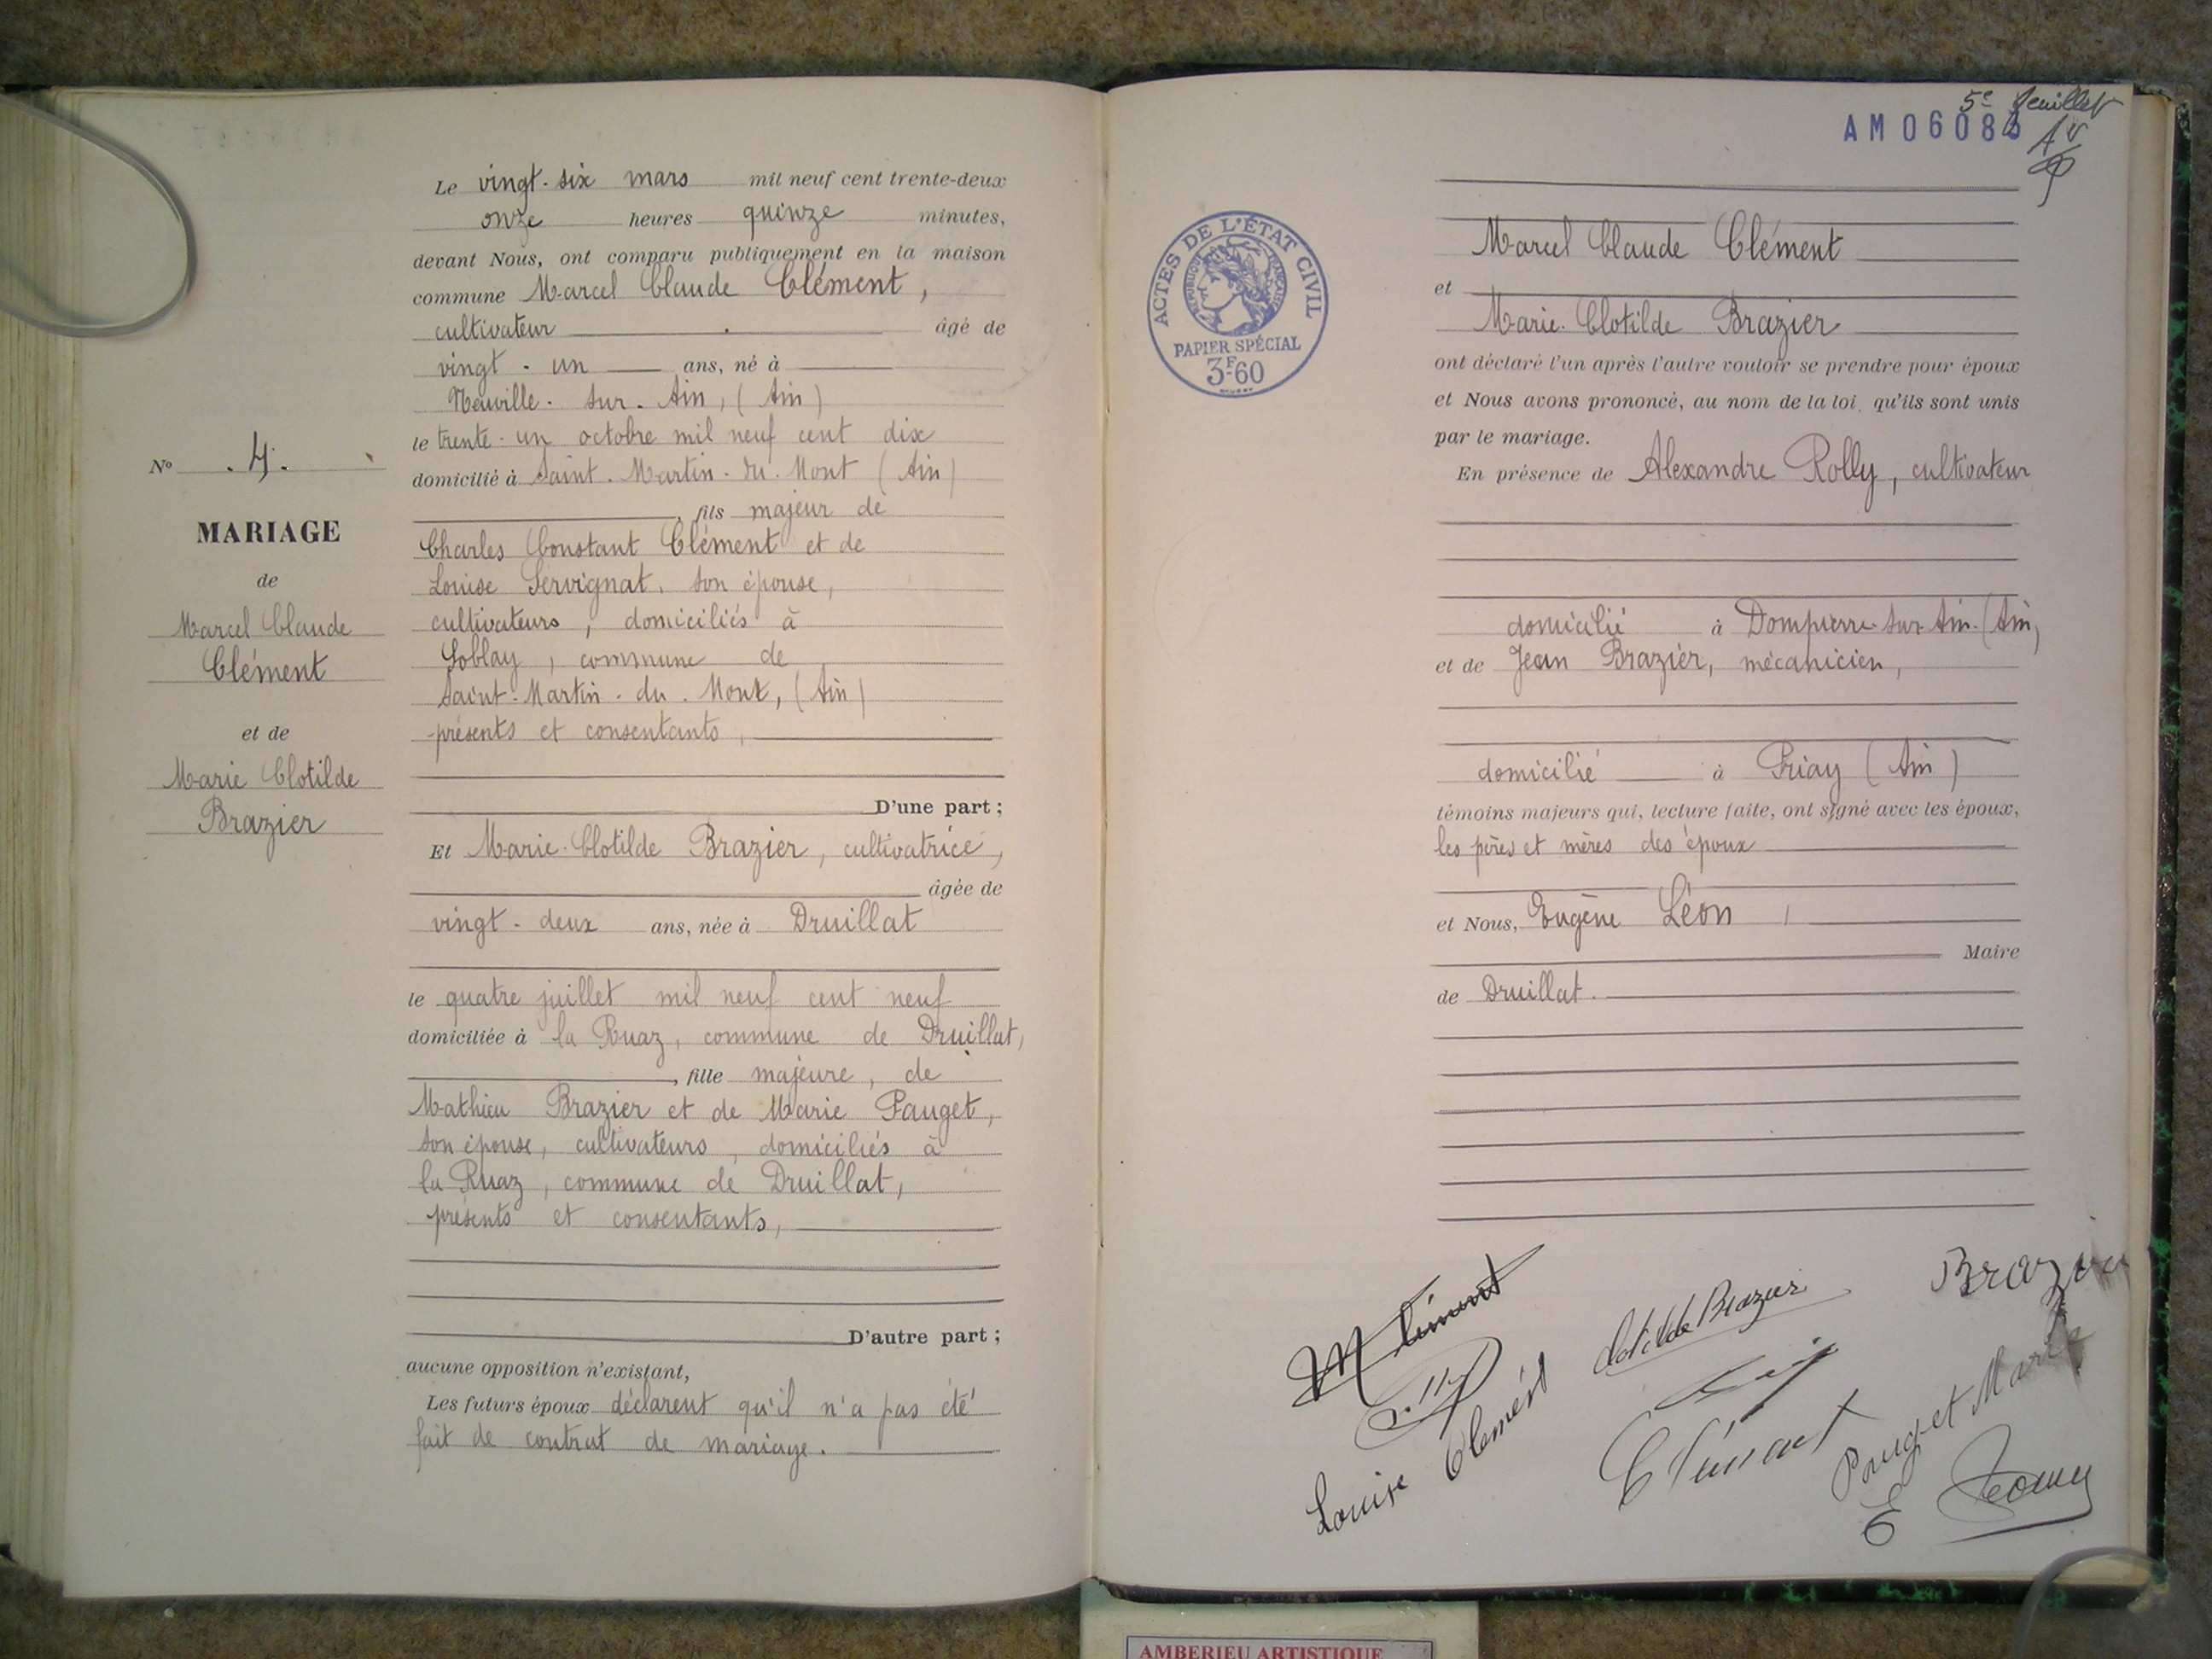 Le vingt-six mars mil neuf cent trente-deux
onze heures quinze minutes,
devant Nous, ont comparu publiquement en la maison
commune Marcel Claude Clément,
cultivateur âgé de
vingt-un ans, né à
Neuville-sur-Ain, (Ain)
le trente-un octobre mil neuf cent dix
domicilié à Saint-Martin-du-Mont (Ain)
, fils majeur de
Charles Constant Clément et de
Louise Servignat, son épouse,
cultivateurs, domiciliés à
Soblay, commune de
Saint-Martin-du-Mont, (Ain)
présents et consentants,
D'une part ;
Et Marie-Clotilde Brazier, cultivatrice,
âgée de
vingt-deux ans, née à Druillat
le quatre juillet mil neuf cent neuf
domiciliée à la Ruaz, commune de Druillat,
, fille majeure, de
Mathieu Brazier et de Marie Pauget,
son épouse, cultivateurs, domiciliés à
la Ruaz, commune de Druillat,
présents et consentants,
D'autre part ;
aucune opposition n'existant,
Les futurs époux déclarent qu'il n'a pas été
fait de contrat de mariage.
No .4.
MARIAGE
de
Marcel Claude
Clément
et de
Marie Clotilde
Brazier
5e feuillet
AM 0608
ACTES DE L'ÉTAT CIVIL
RÉPUBLIQUE FRANÇAISE
PAPIER SPÉCIAL
3F60
Marcel Claude Clément
et
Marie-Clotilde Brazier
ont déclaré l'un après l'autre vouloir se prendre pour époux
et Nous avons prononcé, au nom de la loi, qu'ils sont unis
par le mariage.
En présence de Alexandre Rolly, cultivateur
domicilié à Dompierre-sur-Ain-(Ain,
et de Jean Brazier, mécanicien,
domicilié à Priay (Ain)
témoins majeurs qui, lecture faite, ont signé avec les époux,
les pères et mères des époux
et Nous, Eugène Léon,
Maire
de Druillat.
M Clément
Clotilde Brazier
Brazier
Louise Clemént
Clément
Pauget Marie
E
AMBERIEU ARTISTIQUE